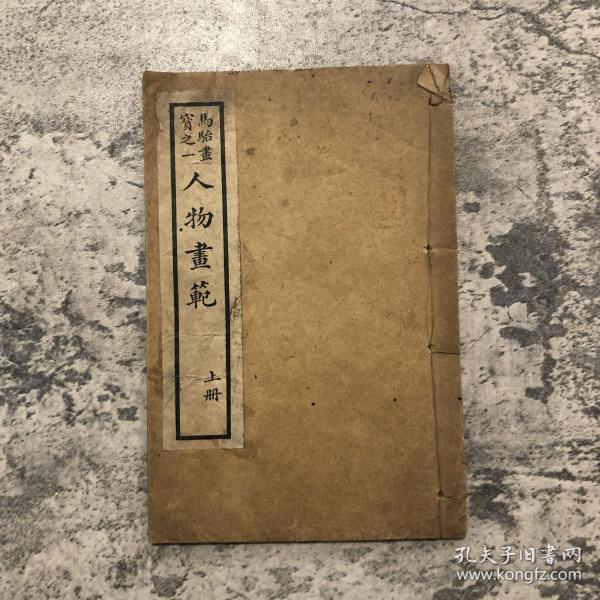 馬駘畫
寳之一
人物畫範
上册
孔夫子旧書网
www.kongfz.com